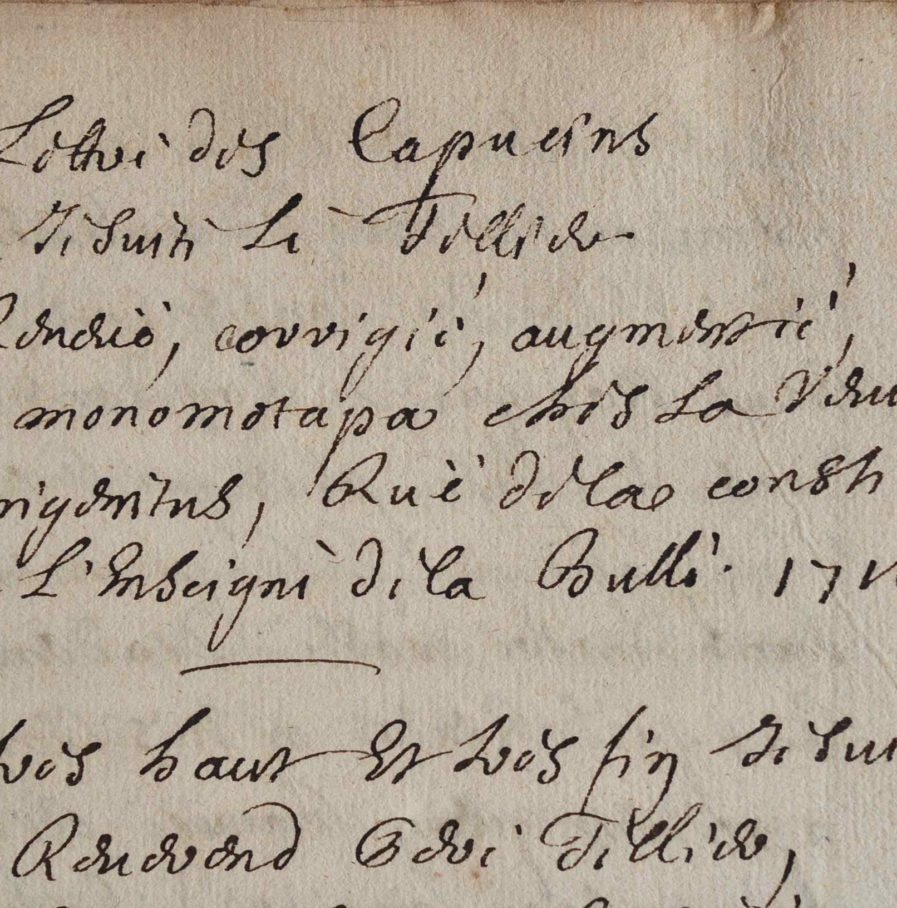 Lettre des Capucins
Jesuite Le Tellier
Reveüe, corrigée, augmentée,
monomotapa chés La Veu
nigenitus, Ruë dela consti
L'Enseigne dela Bulle. 171
tres haut Et tres fin Jesui
Reverend Pere Tellier,